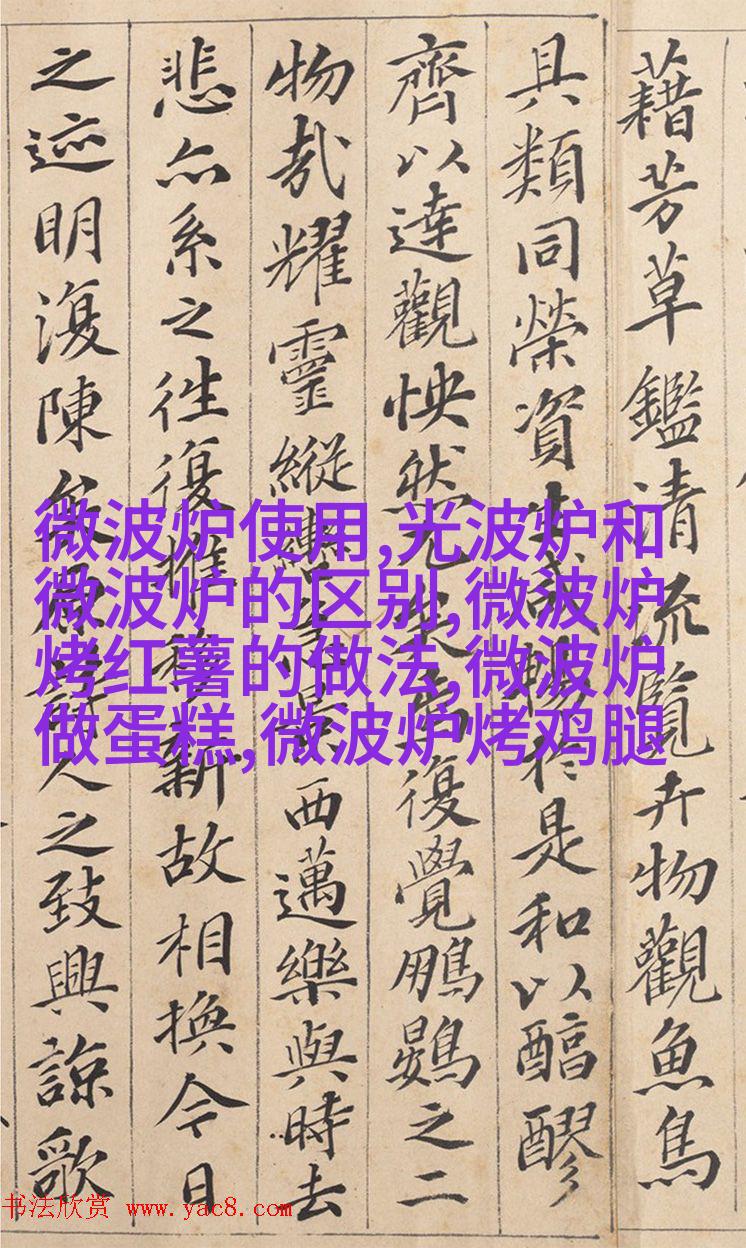 藉芳草鑑清流覽卉物觀魚鳥
具類同榮資生咸暢於是和以醕醪
齊以達觀怏然兀矣焉復覺鵬鷃之二
物哉耀靈縱轡急景西邁樂與時去
悲亦系之往復推移新故相換今日
之迹明復陳矣原詩人之致興諒歌
微波炉使用,光波炉和
微波炉的区别,微波炉
烤红薯的做法,微波炉
做蛋糕,微波炉烤鸡腿
书法欣赏 www.yac8.com